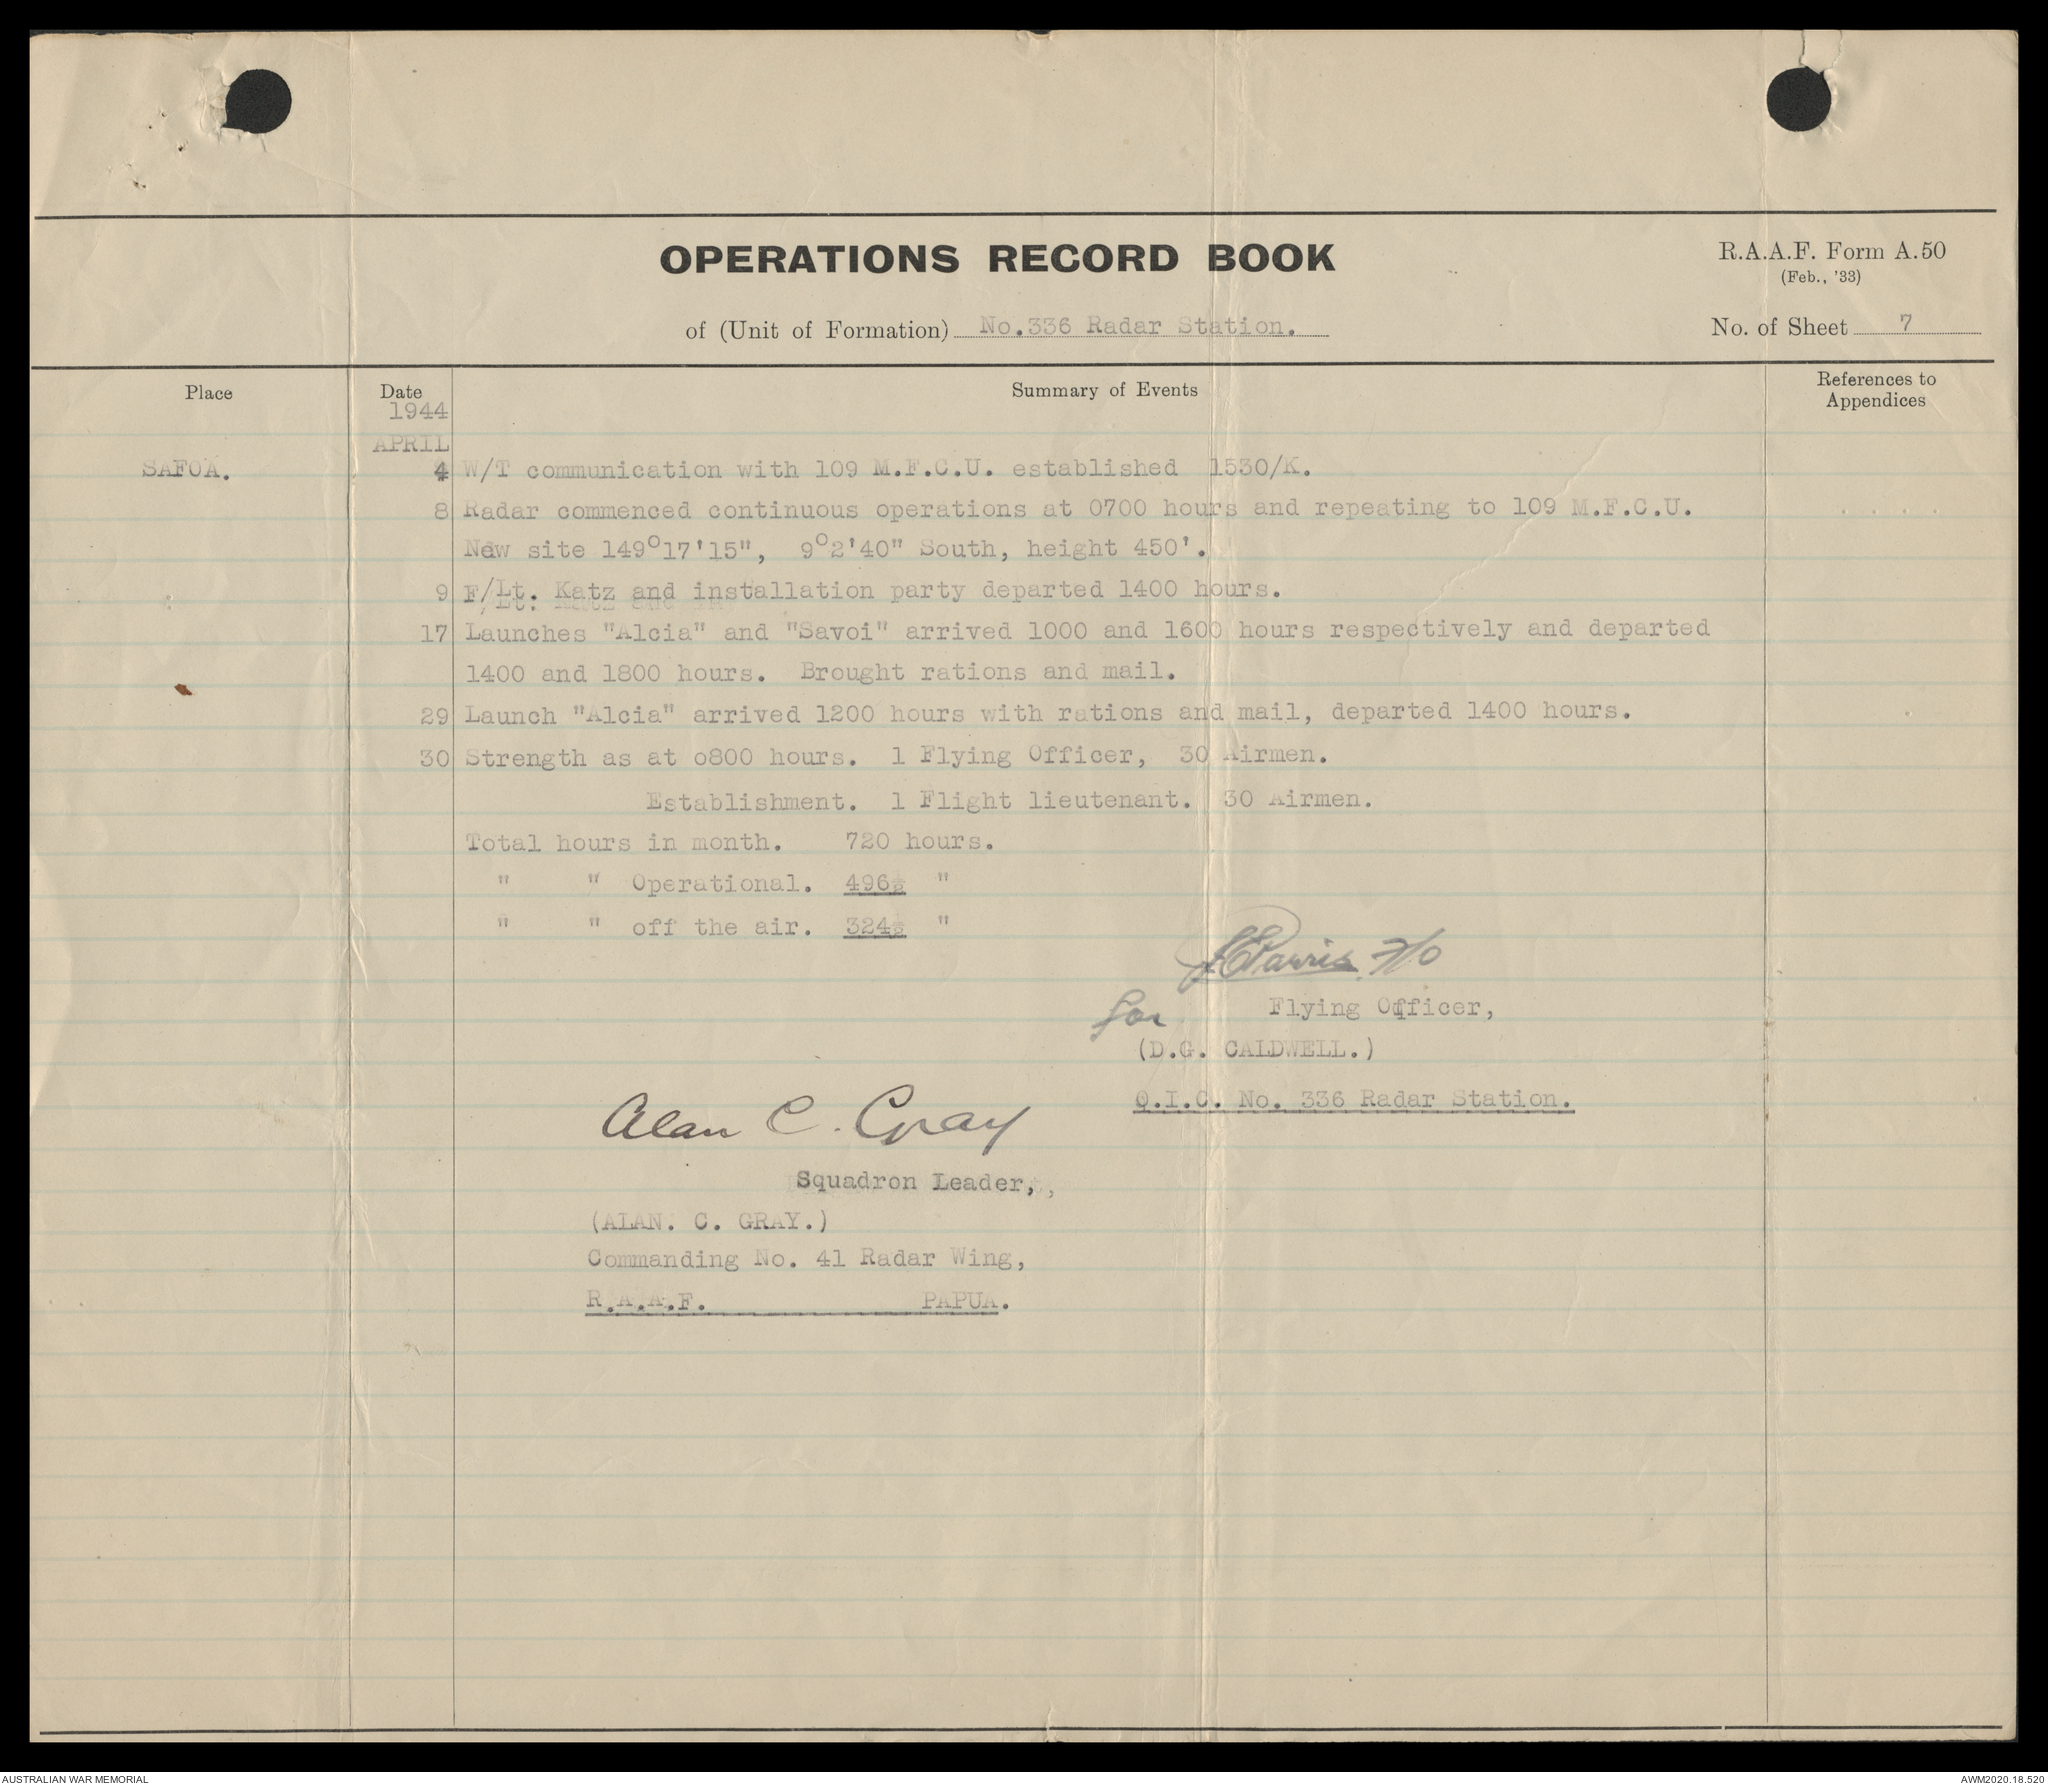 OPERATIONS RECORD BOOK
R.A.A.F. Form A.50
(Feb., '33)
of (Unit of Formation) No.336 Radar Station.
No. of Sheet 7
Place Date Summary of Events References to Appendices
1944
APRIL
SAFOA. 4 W/T communication with 109 M.F.C.U. established 1530/K.
8 Radar commenced continuous operations at 0700 hours and repeating to 109 M.F.C.U.
New site 149°17'15", 9°2'40" South, height 450'.
9 F/Lt. Katz and installation party departed 1400 hours.
17 Launches "Alcia" and "Savoi" arrived 1000 and 1600 hours respectively and departed
1400 and 1800 hours. Brought rations and mail.
29 Launch "Alcia" arrived 1200 hours with rations and mail, departed 1400 hours.
30 Strength as at o800 hours. 1 Flying Officer, 30 Airmen.
Establishment. 1 Flight lieutenant. 30 Airmen.
Total hours in month. 720 hours.
" " Operational. 496½ "
" " off the air. 324½ "
Parris F/O
for Flying Officer,
(D.G. CALDWELL.)
O.I.C. No. 336 Radar Station.
Alan C. Gray
Squadron Leader,,
(ALAN. C. GRAY.)
Commanding No. 41 Radar Wing,
R.A.A.F. PAPUA.
AUSTRALIAN WAR MEMORIAL
AWM2020.18.520